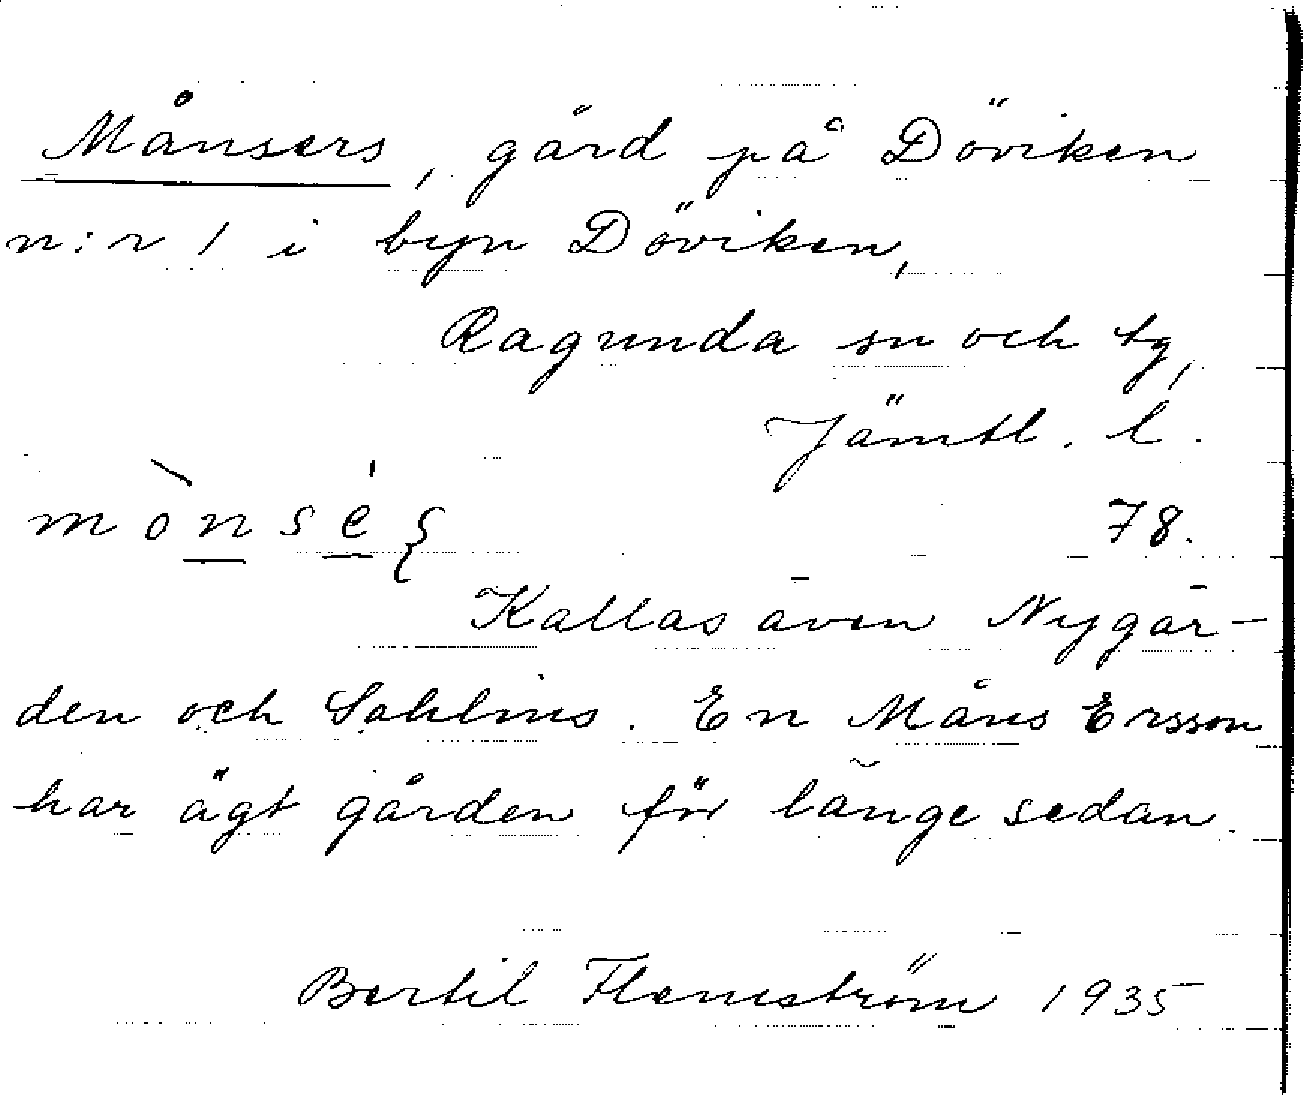 Månsers, gård på Döviken
n:r 1 i byn Döviken,
Ragunda sn och tg,
Jämtl. l.
78.
Kallas även Nygår-
den och Sahlins. En Måns Ersson
har ägt gården för länge sedan.
Bertil Flemström 1935